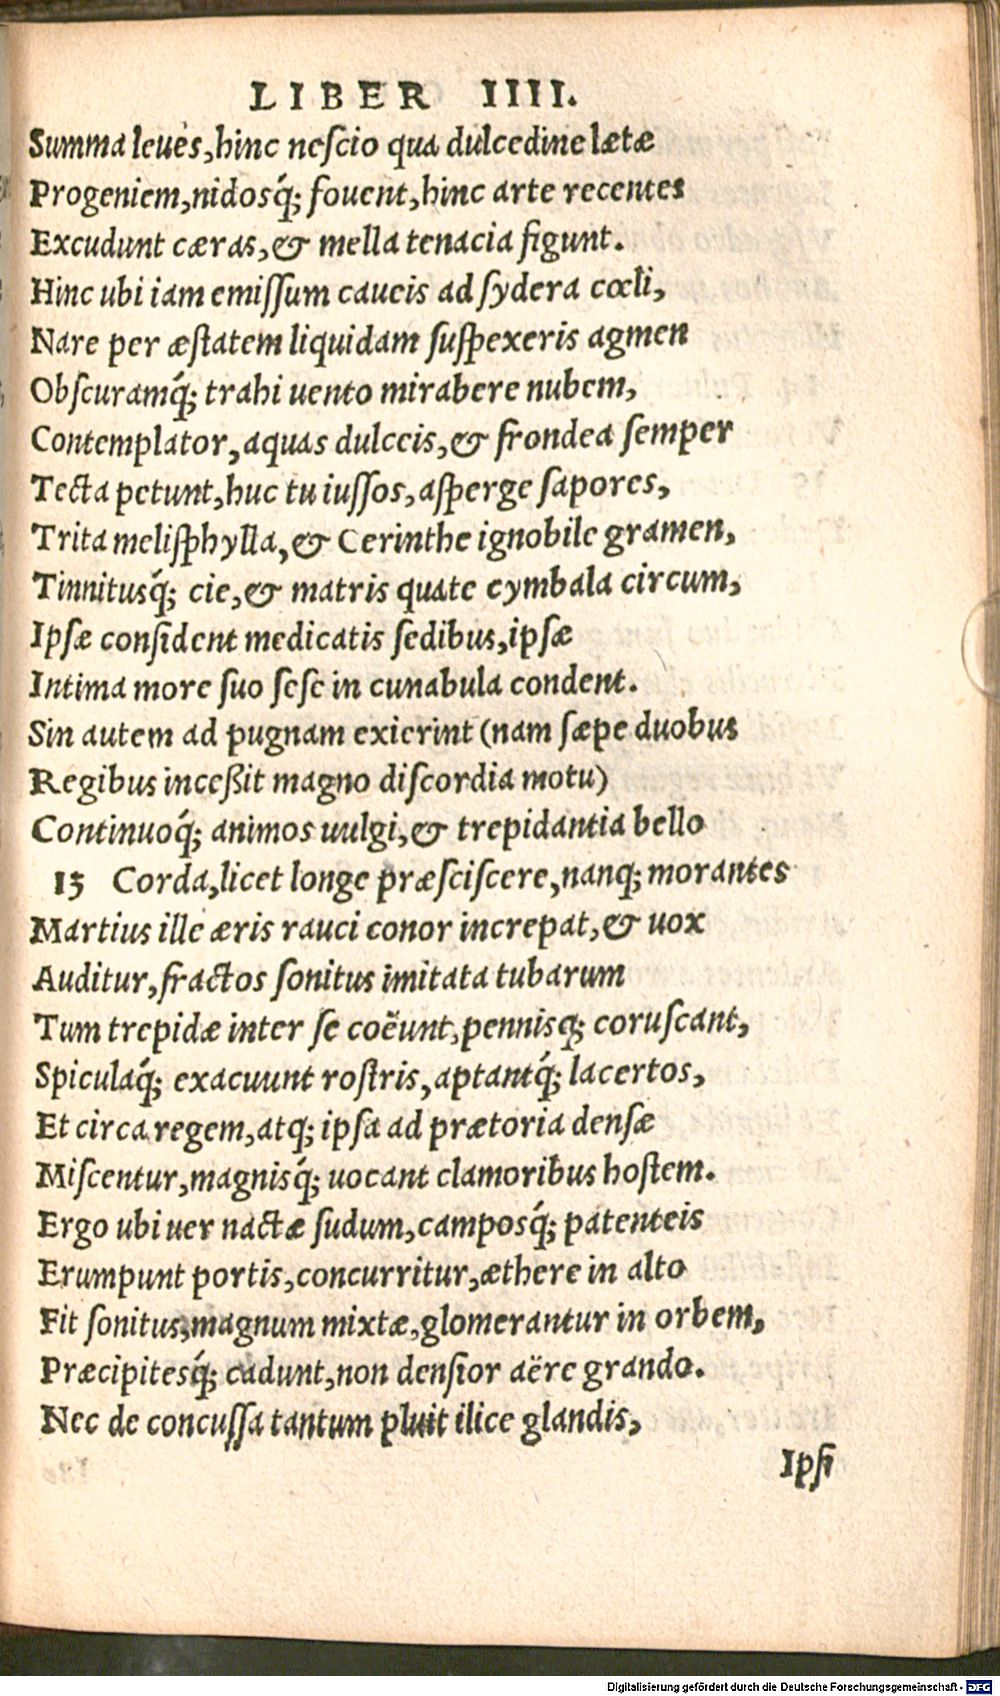 LIBER IIII.
Summa leues, hinc nescio qua dulcedine lætæ
Progeniem, nidosq́; fouent, hinc arte recentes
Excudunt cæras, & mella tenacia figunt.
Hinc ubi iam emissum caueis ad sydera cœli,
Nare per æstatem liquidam suspexeris agmen
Obscuramq́; trahi uento mirabere nubem,
Contemplator, aquas dulceis, & frondea semper
Tecta petunt, huc tu iussos, asperge sapores,
Trita melisphylla, & Cerinthe ignobile gramen,
Tinnitusq́; cie, & matris quate cymbala circum,
Ipsæ consident medicatis sedibus, ipsæ
Intima more suo sese in cunabula condent.
Sin autem ad pugnam exierint (nam sæpe duobus
Regibus inceßit magno discordia motu)
Continuoq́; animos uulgi, & trepidantia bello
15 Corda, licet longe præsciscere, nanq; morantes
Martius ille æris rauci conor increpat, & uox
Auditur, fractos sonitus imitata tubarum
Tum trepidæ inter se coëunt, pennisq; coruscant,
Spiculaq́; exacuunt rostris, aptantq́; lacertos,
Et circa regem, atq; ipsa ad prætoria densæ
Miscentur, magnisq́; uocant clamoribus hostem.
Ergo ubi uer nactæ sudum, camposq́; patenteis
Erumpunt portis, concurritur, æthere in alto
Fit sonitus, magnum mixtæ, glomerantur in orbem,
Præcipitesq́; cadunt, non densior aëre grando.
Nec de concussa tantum pluit ilice glandis,
Ipsi
Digitalisierung gefördert durch die Deutsche Forschungsgemeinschaft - DFG